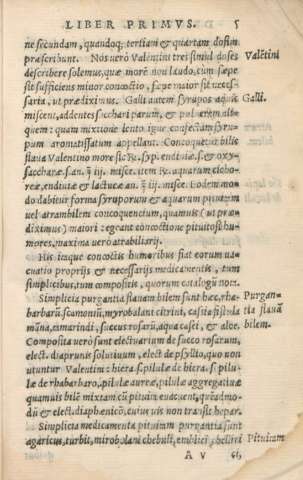 LIBER PRIMVS. 5
ne secundam, quandoq; tertiam et quartam dosim
præscribunt. Nos uerò Valentini tres simul doses
Valẽtini
describere solemus, quæ morẽ non laudo, cum sæpe
sit sufficiens minor concoctio, sæpe maior sit necessaria,
ut prædiximus. Galli autem syrupos aquis
Galli.
miscent, addentes sacchari parum, et puluerem aliquem:
quam mixtionem lento igne
rupum aromatissatum appellant. Concoquetur bilis
flaua Valentino more sic. ℞. syp. endiuiæ, s. et oxysaccharæ
s. an. ℥ iij. misce. item ℞. aquarum cichoreæ,
endiuiæ et lactucæ an. ℥ iij. misce. Eodem modo
dabitur forma syruporum et aquarum pituitam
uel atrambilem concoquentium, quamuis (ut prædiximus)
maiori egeant concoctione pituitosi humores,
maximè uerò atrabilarij.
His itaque concoctis humoribus fiat eorum uacuatio
proprijs et necessarijs medicamentis, tum
simplicibus, tum compositis, quorum catalogũ
Simplicia purgantia flauam bilem sunt hæc, rhabarbarũ,
Purgantia
scammoniũ, myrobalani citrini, cassia fistula
flauã
mãna, tamarindi, succus rosarũ, aqua casei, et aloe.
bilem.
Composita uerò sunt electuarium de succo rosarum,
elect. diaprunis solutiuum, elect. de psyllio, quo non
utuntur Valentini: hiera s. pilulæ de hiera. s. pilulæ
de rhabarbaro, pilulæ aureæ, pilulæ aggregatiuæ
quamuis bilẽ mixtam cũ pituita euacuent, quẽadmodũ
et elect. diaphœnicõ, cuius uis non transit hepar.
Simplicia medicamenta pituitam purgantia sunt
agaricus, turbit, mirobolani chebuli, emblici, bellirici
Pituitam
A V